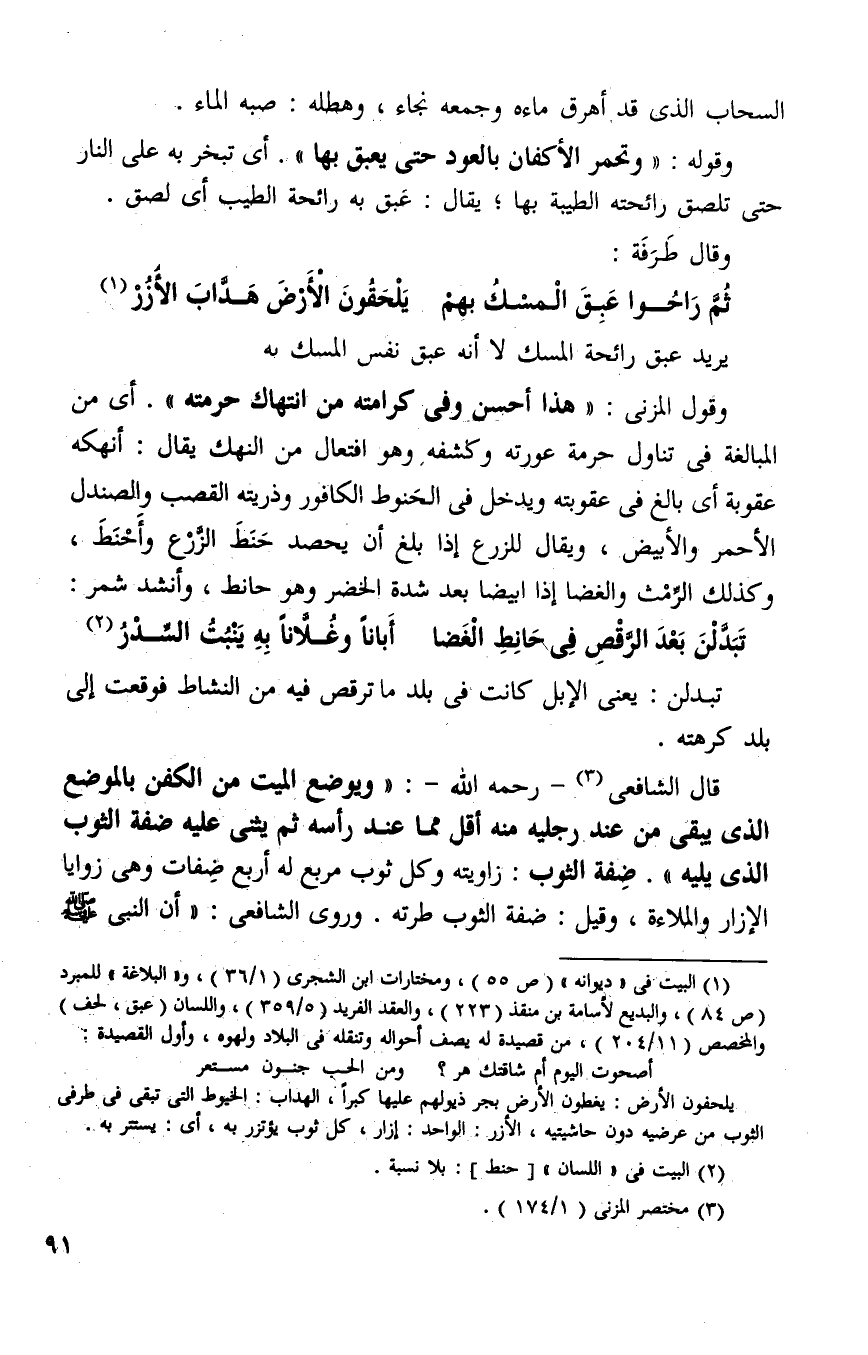 السحاب الذى قد أهرق ماءه وجمعه نجاء ، وهطله : صبه الماء .
وقوله : « وتحمر الأكفان بالعود حتى يعبق بها » . أى تبخر به على النار
حتى تلصق رائحته الطيبة بها ؛ يقال : عَبق به رائحة الطيب أى لصق .
وقال طَرَفَة :
ثُمَّ رَاحُـــوا عَبِـقَ الْـمسْـكُ بهمْ يَلْحَقُونَ الْأَرْضَ هَـدَّابَ الأُزُرْ (١)
يريد عبق رائحة المسك لا أنه عبق نفس المسك به
وقول المزنى : « هذا أحسن وفى كرامته من انتهاك حرمته » . أى من
المبالغة فى تناول حرمة عورته وكشفه وهو افتعال من النهك يقال : أنهكه
عقوبة أى بالغ فى عقوبته ويدخل فى الحَنوط الكافور وذريته القصب والصندل
الأحمر والأبيض ، ويقال للزرع إذا بلغ أن يحصد حَنَطَ الزَّرْع وأَحْنَطَ ،
وكذلك الرِّمْث والغضا إذا ابيضا بعد شدة الخضر وهو حانط ، وأنشد شمر :
تَبَدَّلْنَ بَعْدَ الرَّقْصِ فِى حَانِطِ الْغَضا أَباناً وغُـــلَّاناً بِهِ يَنْبُتُ السِّـــدْرُ (٢)
تبـدلن : يعنى الإبل كانت فى بلد ما ترقص فيه من النشاط فوقعت إلى
بلد كرهته .
قال الشافعى (٣) – رحمه الله – : « ويوضع الميت من الكفن بالموضع
الذى يبقى من عند رجليه منه أقل مما عنـد رأسه ثم يثنى عليه ضفة الثوب
الذى يليه » . ضِفة الثوب : زاويته وكل ثوب مربع له أربع ضِفات وهى زوايا
الإزار والملاءة ، وقيل : ضفة الثوب طرته . وروى الشافعى : « أن النبى ﷺ
(١) البيت فى « ديوانه » ( ص ٥٥ ) ، ومختارات ابن الشجرى ( ٣٦/١ ) ، و« البلاغة » للمبرد
( ص ٨٤ ) ، والبديع لأسامة بن منقذ ( ٢٢٣ ) ، والعقد الفريد ( ٣٥٩/٥ ) ، واللسان ( عبق ، لحف )
والمخصص ( ٢٠٤/١١ ) ، من قصيدة له يصف أحواله وتنقله فى البلاد ولهوه ، وأول القصيدة :
أصحوت اليوم أم شاقتك هر ؟ ومن الحـب جنــون مستـعر
يلحفون الأرض : يغطون الأرض بجر ذيولهم عليها كبراً ، الهداب : الخيوط التى تبقى فى طرفى
الثوب من عرضيه دون حاشيتيه ، الأزر : الواحد : إزار ، كل ثوب يؤتزر به ، أى : يستتر به .
(٢) البيت فى « اللسان » [ حنط ] : بلا نسبة .
(٣) مختصر المزنى ( ١٧٤/١ ) .
٩١